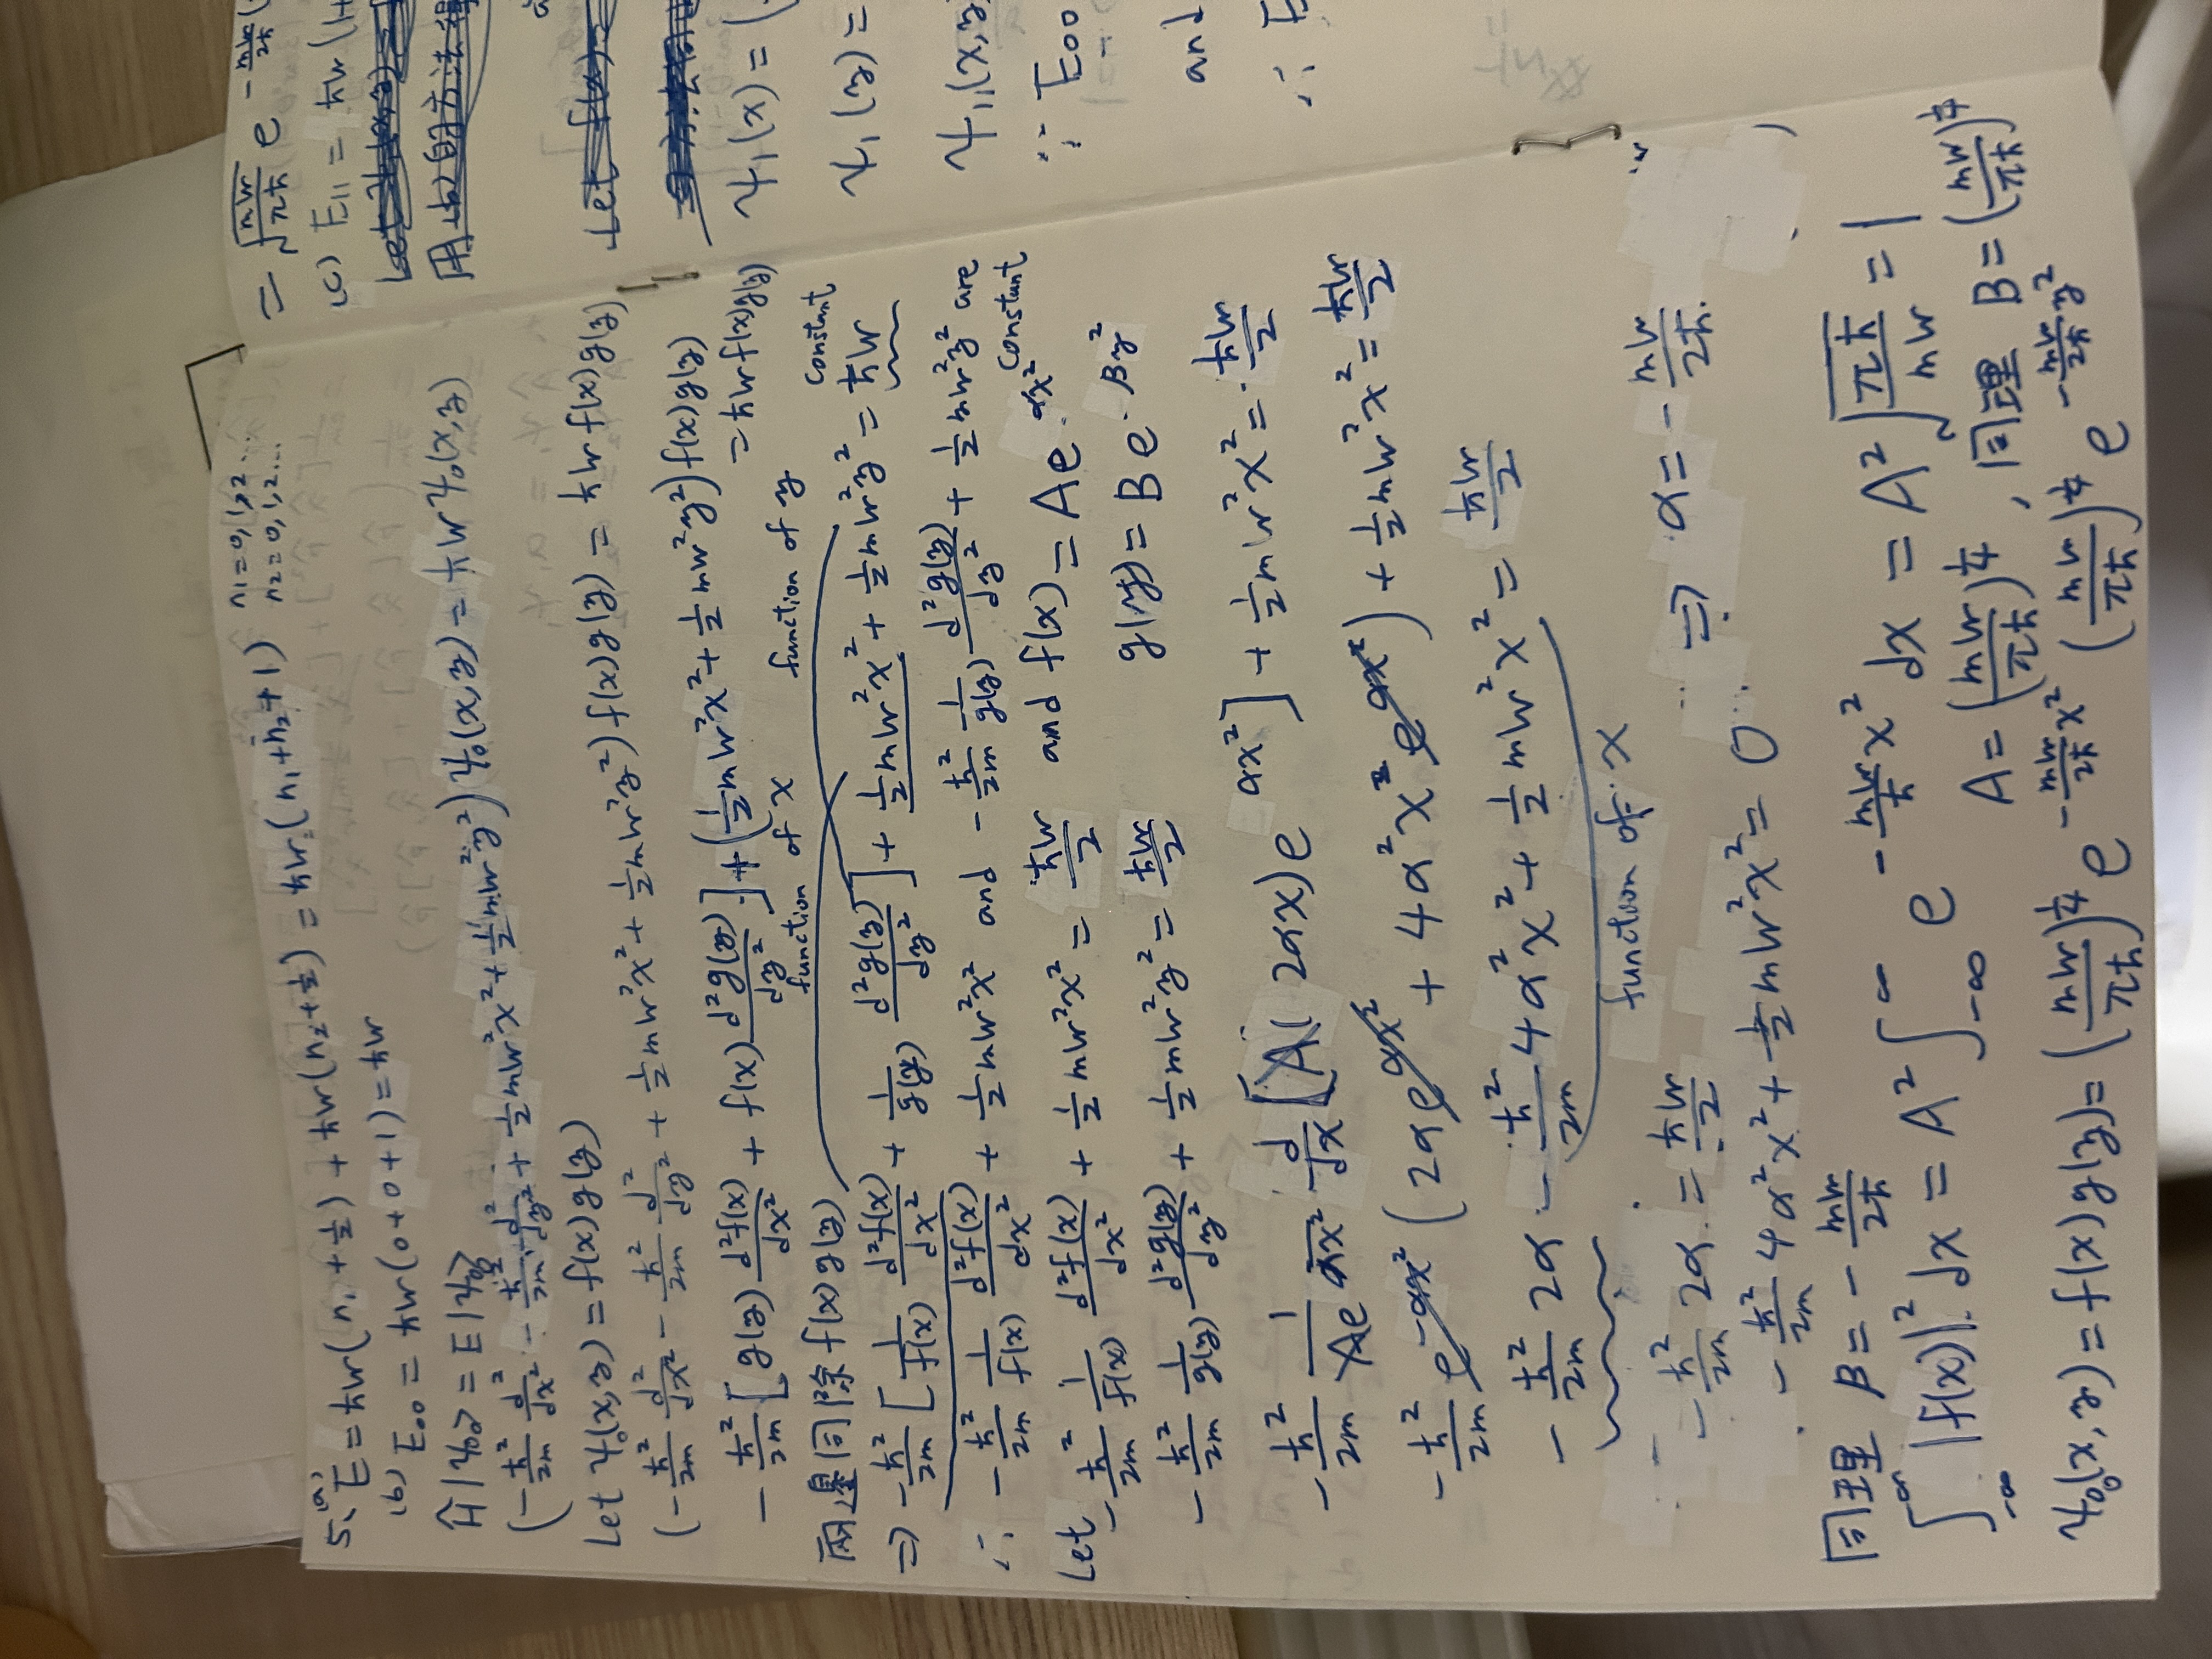 5、(a) E = ħw(n₁ + 1/2) + ħw(n₂ + 1/2) = ħw(n₁ + n₂ + 1)
n₁ = 0, 1, 2 ...
n₂ = 0, 1, 2 ...
(b) E₀₀ = ħw(0 + 0 + 1) = ħw
Ĥ|ψ₀₀> = E|ψ₀₀>
(-ħ²/2m d²/dx² - ħ²/2m d²/dy² + 1/2 mw²x² + 1/2 mw²y²) ψ₀₀(x,y) = ħw ψ₀₀(x,y)
Let ψ₀₀(x,y) = f(x)g(y)
(-ħ²/2m d²/dx² - ħ²/2m d²/dy² + 1/2 mw²x² + 1/2 mw²y²) f(x)g(y) = ħw f(x)g(y)
-ħ²/2m [g(y) d²f(x)/dx² + f(x) d²g(y)/dy²] + (1/2 mw²x² + 1/2 mw²y²) f(x)g(y)
= ħw f(x)g(y)
function of x function of y
兩邊同除 f(x)g(y)
constant
⇒ -ħ²/2m [1/f(x) d²f(x)/dx² + 1/g(y) d²g(y)/dy²] + 1/2 mw²x² + 1/2 mw²y² = ħw
∴ -ħ²/2m 1/f(x) d²f(x)/dx² + 1/2 mw²x² and -ħ²/2m 1/g(y) d²g(y)/dy² + 1/2 mw²y² are
constant
Let -ħ²/2m 1/f(x) d²f(x)/dx² + 1/2 mw²x² = ħw/2 and f(x) = Ae^(αx²)
-ħ²/2m 1/g(y) d²g(y)/dy² + 1/2 mw²y² = ħw/2 g(y) = Be^(βy²)
-ħ²/2m 1/(Ae^(αx²)) d/dx [A(2αx)e^(αx²)] + 1/2 mw²x² = ħw/2
-ħ²/2m e^(-αx²) (2αe^(αx²) + 4α²x²e^(αx²)) + 1/2 mw²x² = ħw/2
-ħ²/2m 2α - ħ²/2m 4α²x² + 1/2 mw²x² = ħw/2
function of x
-ħ²/2m 2α = ħw/2 ⇒ α = -mw/2ħ
-ħ²/2m 4α²x² + 1/2 mw²x² = 0
同理 β = -mw/2ħ
∫_(-∞)^∞ |f(x)|² dx = A² ∫_(-∞)^∞ e^(-mw/ħ x²) dx = A² √(πħ/mw) = 1
A = (mw/πħ)^(1/4) , 同理 B = (mw/πħ)^(1/4)
ψ₀₀(x,y) = f(x)g(y) = (mw/πħ)^(1/4) e^(-mw/2ħ x²) (mw/πħ)^(1/4) e^(-mw/2ħ y²)
= √(mw/πħ) e^(-mw/2ħ (
(c) E₁₁ = ħw(1+
用(b)的方法得
Let f(x) =
ψ₁(x) = (
ψ₁(y) =
ψ₁₁(x,y
∵ E₀₀
and
∴ E